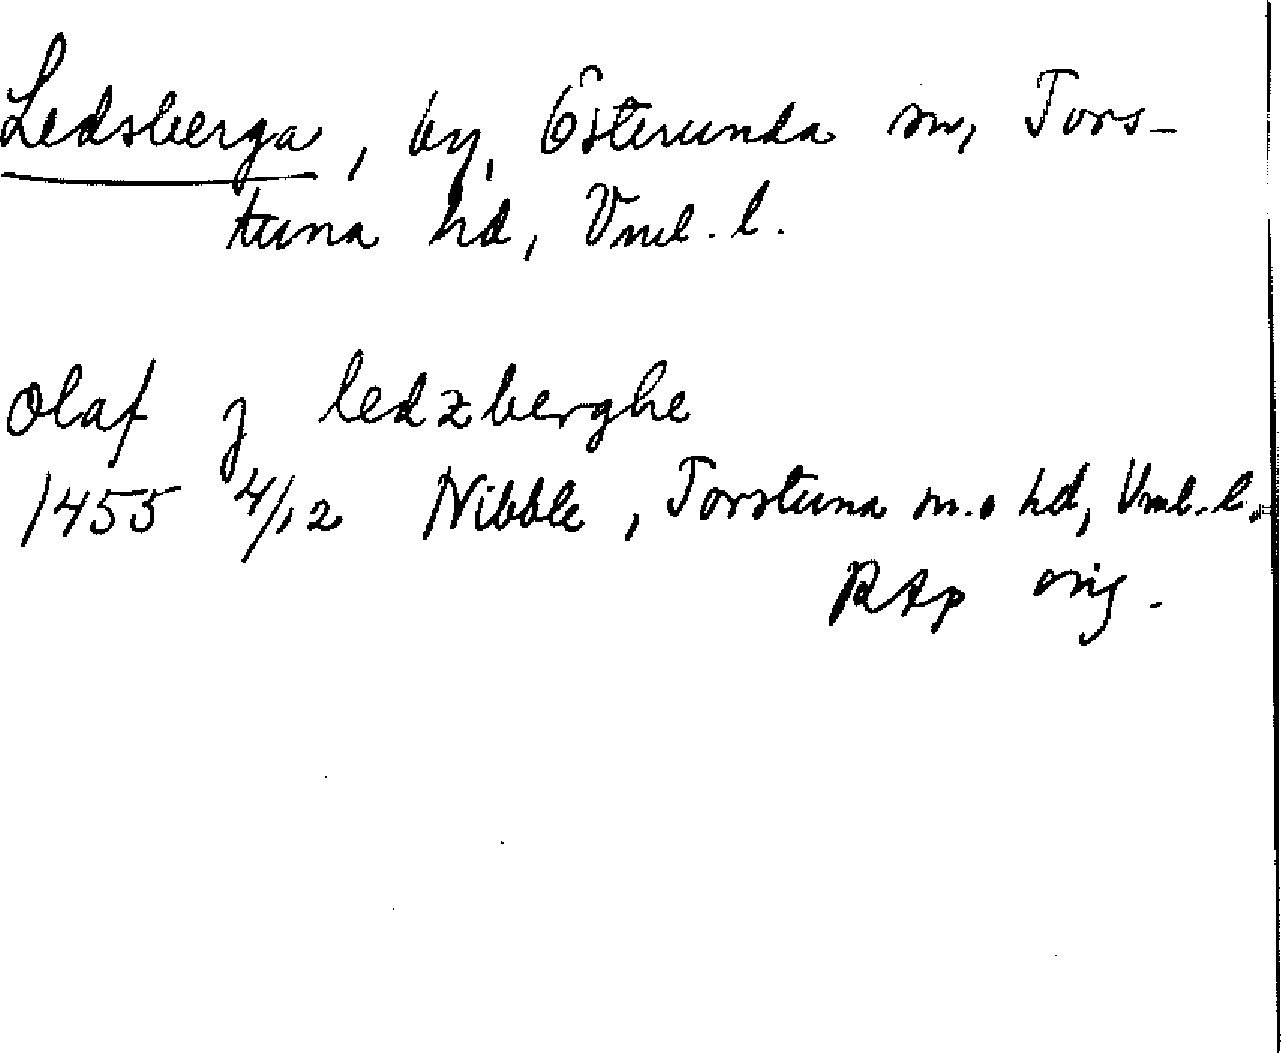 Ledsberga, by, Österunda sn, Tors-
tuna hd, Vml. l.
olaf j ledzberghe
1455 4/12 Nibble, Torstuna sn. o hd, Vml. l.
RAp orig.